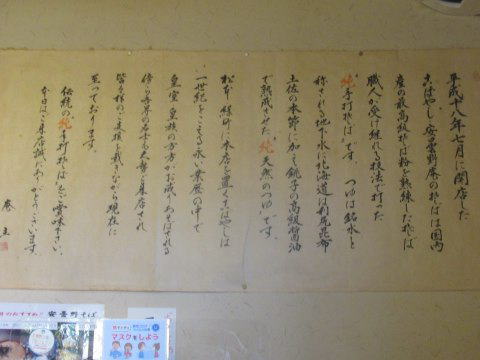 平成十八年七月に開店した
こばやし 安曇野庵のそばは国内
産の最高級そば粉を熟練したそば
職人が受け継れる技法で打った
〝純手打そば〟です。 つゆは銘水と
称される地下水に北海道は利尻昆布
土佐の本節に加え銚子の高級醤油
で熟成させた〝純天然のつゆ〟です。
松本 緑町に本店を置くこばやしは
一世紀をこえる永い業歴の中で
皇室 皇族の方方がお成りあそばされる
傍ら各界の名士も大勢ご来店され
皆々様のご支援を戴きながら現在に
至っております。
伝統の〝純手打そば〟をご賞味下さい。
本日はご来店誠にありがとうございます。
庵 主
のおすすめ!! 安曇野そば
マスクをしよう